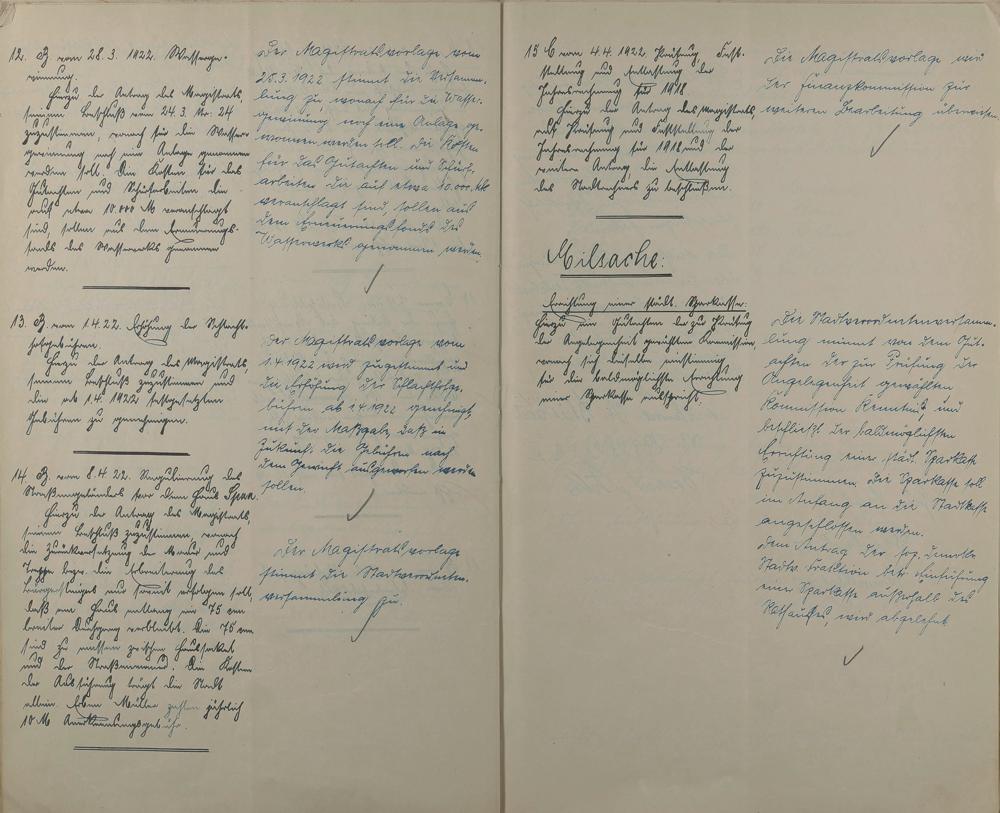 12. B. vom 28.3.1922. Wasserge-
winnung.
Hierzu der Antrag des Magistrats,
seinem Beschluß vom 24.3. Nr. 24
zuzustimmen, wonach für die Wasser-
gewinnung noch eine Anlage genommen
werden soll. Die Kosten für das
Gutachten und Schürfarbeiten die
auf etwa 10.000 M veranschlagt
sind, sollen aus dem Erneuerungs-
fonds des Wasserwerks genommen
werden.
Der Magistratsvorlage vom
28.3.1922 stimmt die Versamm-
lung zu, wonach für die Wasser-
gewinnung noch eine Anlage ge-
wonnen werden soll. Die Kosten
für das Gutachten und Schürf-
arbeiten die auf etwa 10.000 Mk
veranschlagt sind, sollen aus
dem Erneuerungsfonds des
Wasserwerks genommen werden.
13. B. vom 1.4.22. Erhöhung der Schlacht-
hofgebühren.
Hierzu der Antrag des Magistrats,
seinem Beschluß zuzustimmen und
die ab 1.4.1922 festgesetzten
Gebühren zu genehmigen.
Der Magistratsvorlage vom
1.4.1922 wird zugestimmt und
die Erhöhung der Schlachthofge-
bühren ab 1.4.1922 genehmigt,
mit der Maßgabe, daß in
Zukunft die Gebühren nach
dem Gewicht ausgeworfen werden
sollen.
14. B. vom 8.4.22. Regulierung des
Straßengeländers vor dem Haus
Hierzu der Antrag des Magistrats,
seinem Beschluß zuzustimmen, wonach
die Zurückversetzung der Mauer und
Treppe bezw. die Erbreiterung des
Bürgersteiges nur soweit erfolgen soll,
daß am Haus entlang ein 75 cm
breiter Ausgang verbleibt. Die 75 cm
sind zu messen zwischen Haussockel
und der Straßenmauer. Die Kosten
der Ausführung trägt die Stadt
allein. Erben Müller zahlen jährlich
10 M Anerkennungsgebühr.
Der Magistratsvorlage
stimmt die Stadtverordneten-
versammlung zu.
15 C vom 4.4.1922. Prüfung, Fest-
stellung und Entlastung der
Jahresrechnung für 1918
Hierzu der Antrag des Magistrats,
auf Prüfung und Feststellung der
Jahresrechnung für 1918 und der
weitere Antrag die Entlastung
des Stadtrechners zu beschließen.
Die Magistratsvorlage wird
der Finanzkommission zur
weiteren Bearbeitung überwiesen.
Eilsache:
Errichtung einer städt. Sparkasse:
Hierzu ein Gutachten der zur Prüfung
der Angelegenheit gewählten Kommission
wonach sich dieselbe einstimmig
für die baldmöglichste Errichtung
einer Sparkasse ausspricht.
Die Stadtverordnetenversamm-
lung nimmt von dem Gut-
achten der zur Prüfung der
Angelegenheit gewählten
Kommission Kenntniß und
beschließt der baldmöglichsten
Errichting einer städt. Sparkasse
zuzustimmen. Die Sparkasse soll
im Anfang an die Stadtkasse
angeschlossen werden.
Dem Antrag der soz. demokr.
Stadtv. Fraktion betr. Einführung
einer Sparkasse außerhalb des
Rathauses wird abgelehnt